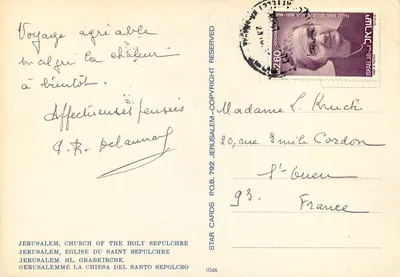 Voyage agréable
malgré la chaleur
à bientôt.
Affectueuses pensées
JERUSALEM, CHURCH OF THE HOLY SEPULCHRE
JERUSALEM, EGLISE DU SAINT SEPULCHRE
JERUSALEM. HL. GRABKIRCHE.
GERUSALEMME LA CHIESA DEL SANTO SEPOLCRO
STAR CARDS P.O.B. 792 JERUSALEM-COPYRIGHT RESERVED
1046
2.60
ISRAEL
ישראל
Madame L.
20, rue Emile Cordon
St-Ouen
93.
France